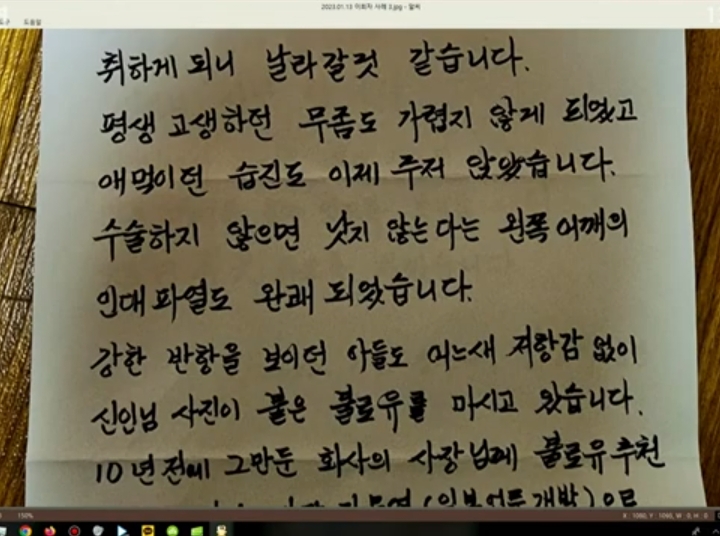 2023.01.13 이희자 사례 3.jpg - 알씨
도구 도움말
취하게 되니 날라갈것 같습니다.
평생 고생하던 무좀도 가렵지 않게 되었고
애먹이던 습진도 이제 주저 앉았습니다.
수술하지 않으면 낫지 않는다는 왼쪽 어깨의
인대 파열도 완쾌 되었습니다.
강한 반항을 보이던 아들도 어느새 저항감 없이
신인님 사진이 붙은 불로유를 마시고 왔습니다.
10년전에 그만둔 회사의 사장님께 불로유 추천
150%